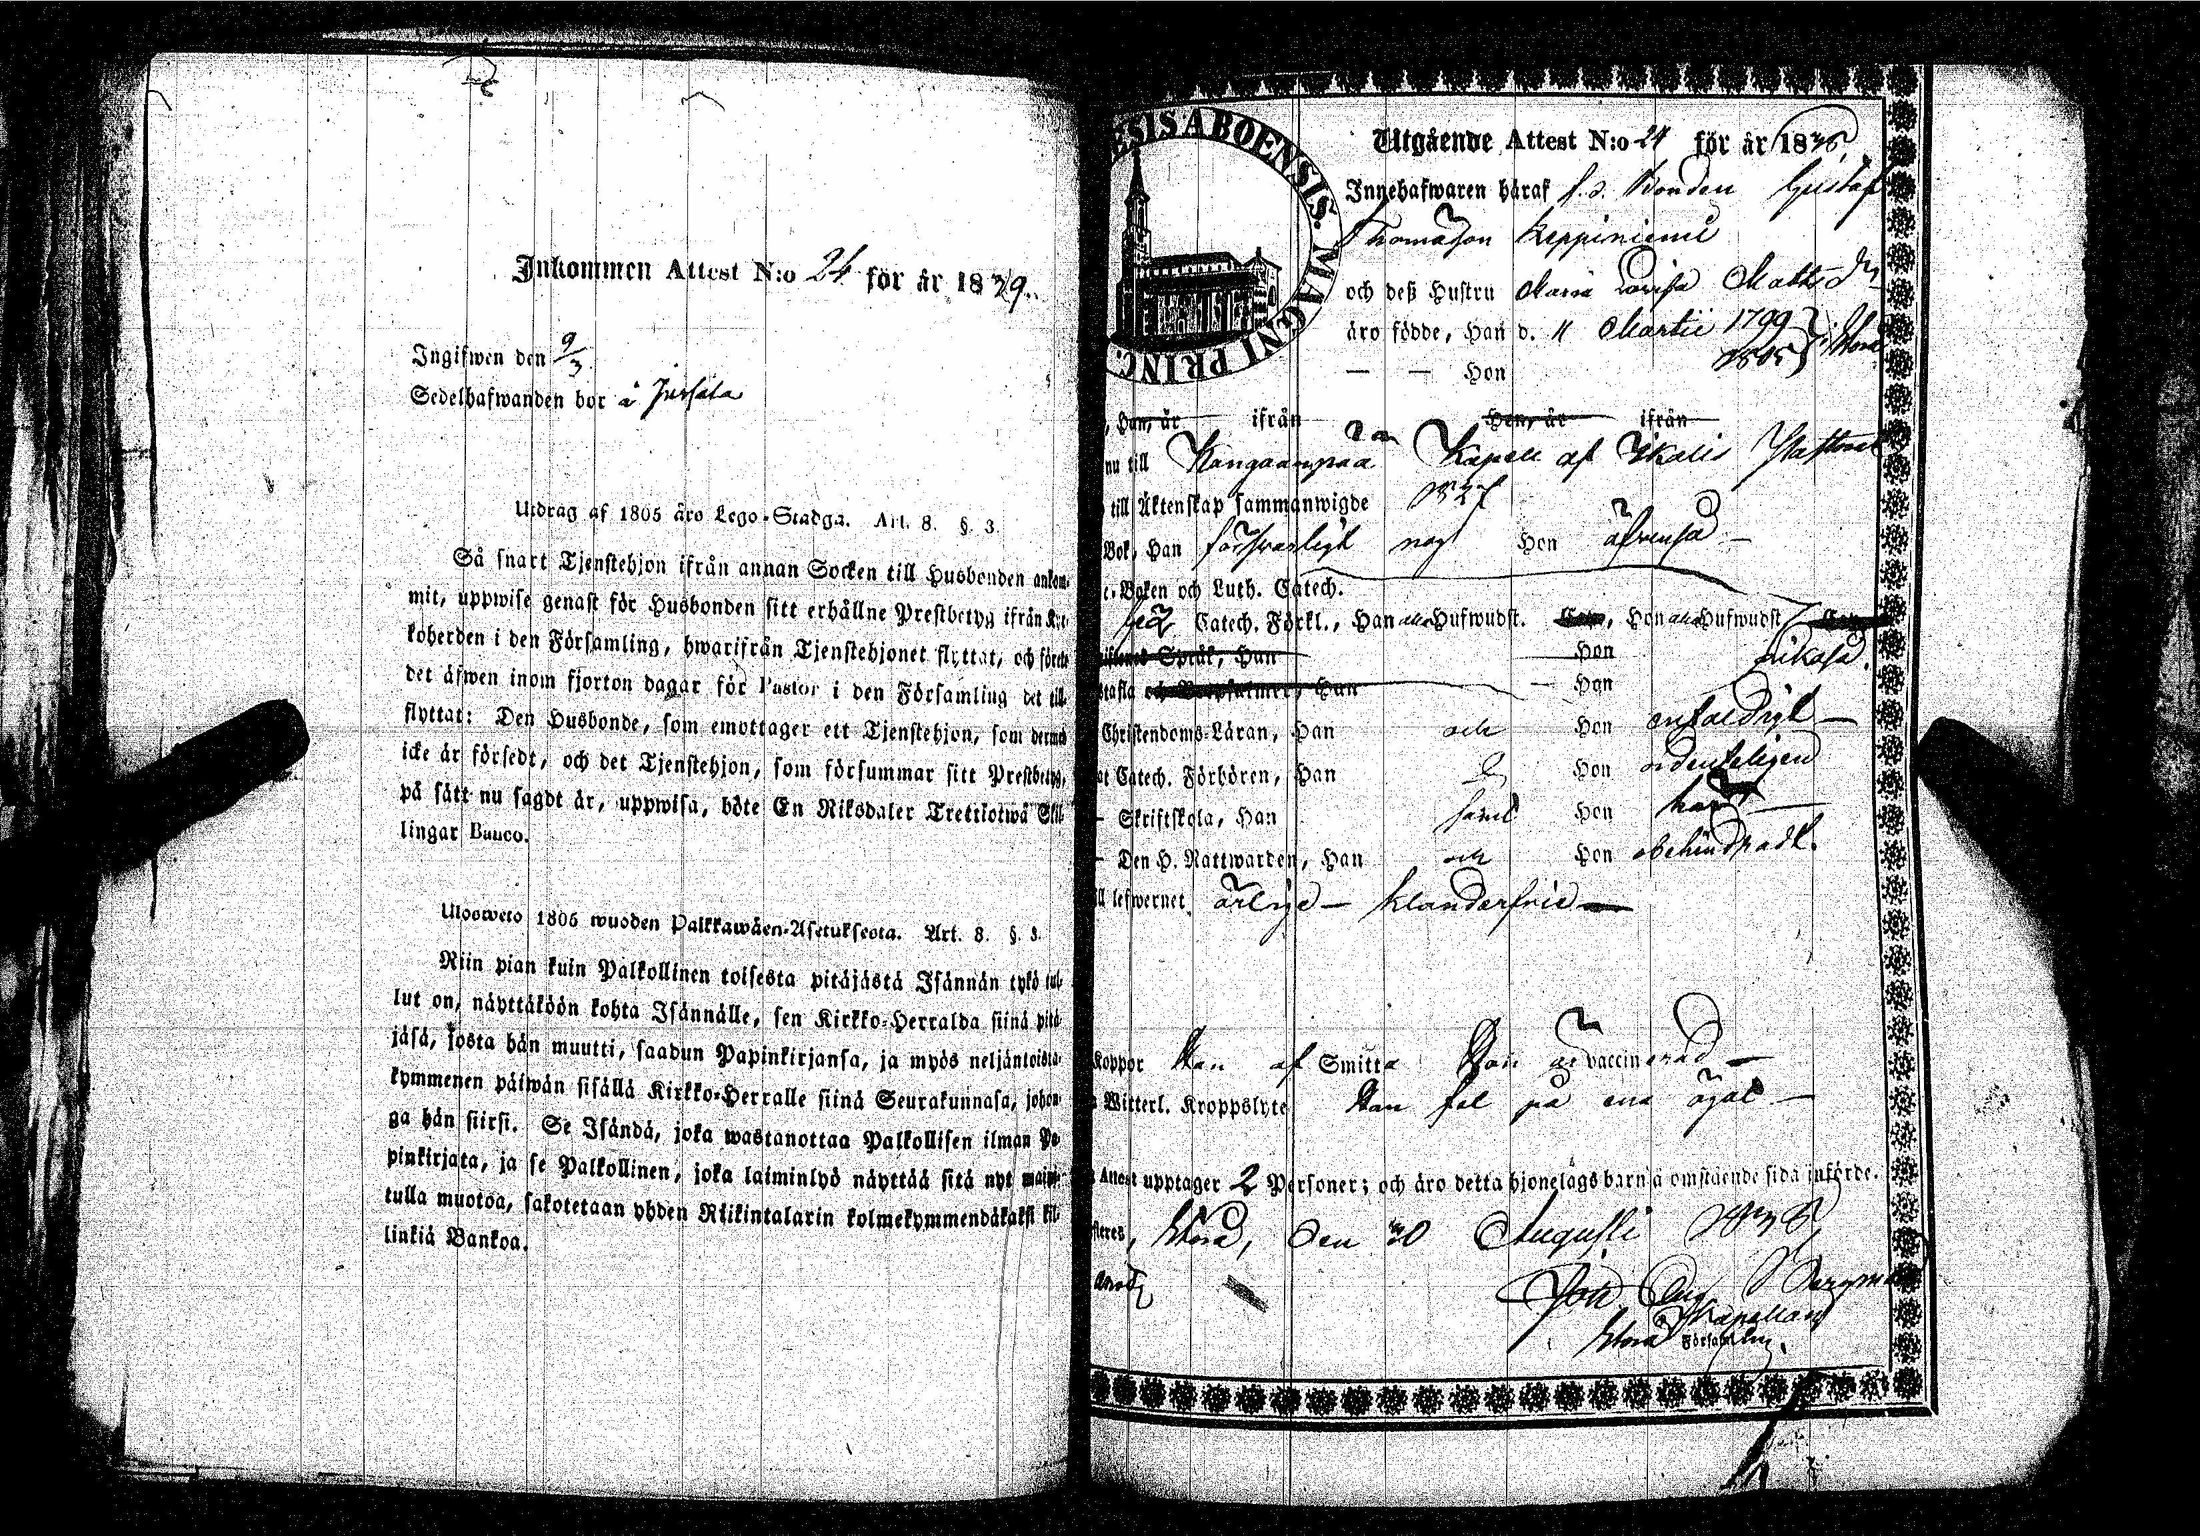 Inkommen Attest N:o 24 för år 1839.
Ingifwen den 9/3
Sedelhafwanden bor å
Utdrag af 1805 års Lego-Stadga. Art. 8. §. 3.
Så snart Tjenstehjon ifrån annan Socken till Husbonden ankom-
mit, uppwise genast för Husbonden sitt erhållne Prestbetyg ifrån Kyr-
koherden i den Församling, hwarifrån Tjenstehjonet flyttat, och förete
det äfwen inom fjorton dagar för Pastor i den Församling det till-
flyttat: Den Husbonde, som emottager ett Tjenstehjon, som dermed
icke är försedt, och det Tjenstehjon, som försummar sitt Prestbetyg,
på sätt nu sagdt är, uppwisa, böte En Riksdaler Trettiotwå Skil-
lingar Banco.
Ulosweto 1805 wuoden Palkkawäen-Asetuksesta. Art. 8. §. 3.
Niin pian kuin Palkollinen toisesta pitäjästä Isännän tykö tul-
lut on, näyttäköön kohta Isännälle, sen Kirkko-Herralda siinä pitä-
jäsä, josta hän muutti, saadun Papinkirjansa, ja myös neljäntoista-
kymmenen päiwän sisällä Kirkko-Herralle siinä Seurakunnasa, johon-
ga hän siirsi. Se Isändä, joka wastanottaa Palkollisen ilman Pa-
pinkirjata, ja se Palkollinen, joka laiminlyö näyttää sitä nyt mainit-
tulla muotoa, sakotetaan yhden Riikintalarin kolmekymmendäkaksi kil-
linkiä Bankoa.
ESIS ABOENSIS. MAGNI PRINC.
Utgående Attest N:o 24 för år 1838
Innehafwaren häraf f.d. Bonden Gustaf
Thomasson Keppiniemi
och deß Hustru Maria Lovisa Mattsdr
äro födde, Han d. 11 Martii 1799
— — Hon 1805
, Han, är ifrån Hon, är ifrån
nu till Kangaanpää Kapell af Ikalis
till Äktenskap sammanwigde 1827
Bok, Han försvarligt nog Hon äfvenså —
e-Boken och Luth. Catech.
Catech. Förkl., Han Hufwudst. , Hon Hufwudst.
Språk, Han Hon likaså.
stafla och Botpsalmer, Han — Hon
Christendoms-Läran, Han och Hon enfaldigt —
at Catech. Förhören, Han Hon ordenteligen
— Skriftskola, Han samt Hon har —
— Den H. Nattwarden, Han och Hon obehindradt.
ill lefwernet ärlige — klanderfrie —
Koppor Han af Smitta Hon är vaccinerad —
Witterl. Kroppslyte Han fel på ena ögat —
Attest upptager 2 Personer; och äro detta hjonelags barn å omstående sida införde.
steres, Storå, den 30 Augusti 1838
Bergman
Kapellan
Storå Församling.